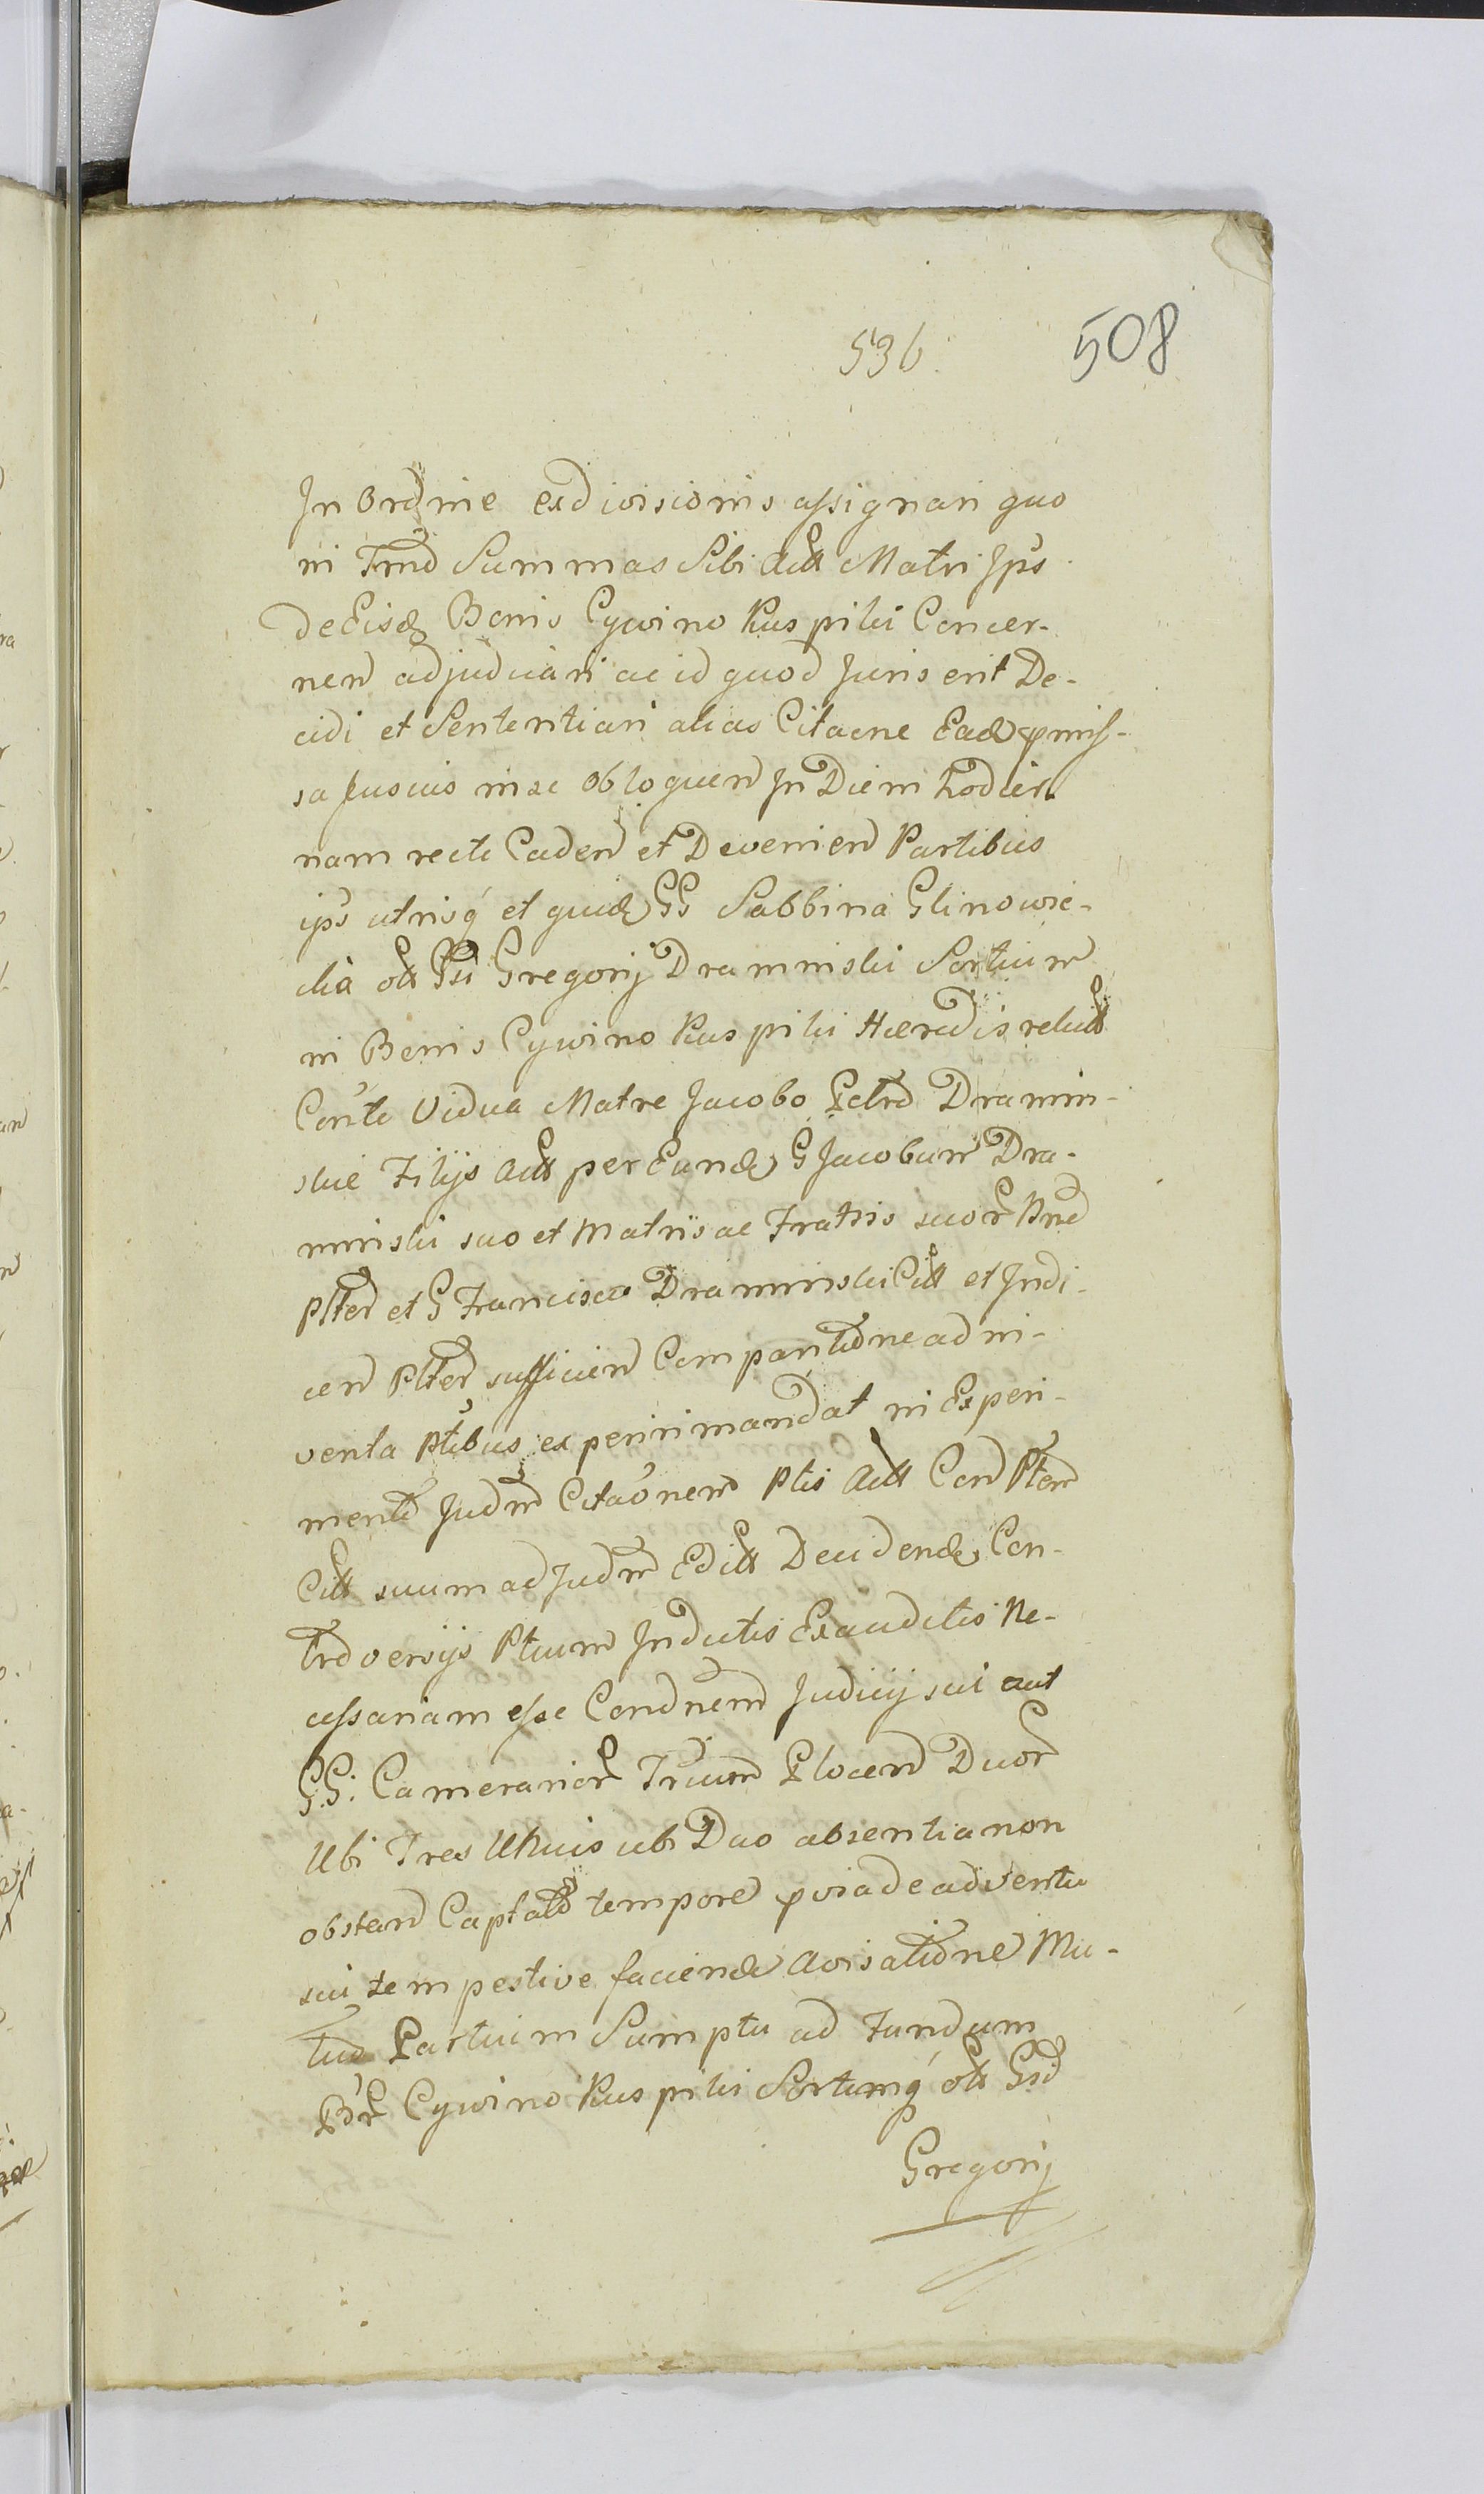 536. 508
In Ordine exdivisionis assignari quo
in Trno Summas Sibi Act Matri Ips
De Eisd Bonis Cywino Kuspiki Concer-
nen adjudicari ac id quod Juris erit De-
cidi et Sententiari alias Citaone Ead pmis-
sa fusius in se obloquen In Diem hodier
nam recte Caden et Devenien Partibus
ips utrisq et quid GG Sabbina Glinowie-
cka olt Gsi Gregorij Draminski Sortium
in Bonis Cywino Kuspiki Haeredis relict
Conte Vidua Matre Jacobo Petro Dramin-
skie Filijs Act per Eund G Jacobum Dra-
minski suo et Matris ac Fratris suor Nne
Plter et G Francisco Draminski Citt et Judi-
cen Plter sufficien Comparitione ad in-
venta Ptibus experiri mandat in Experi-
mento Judm Citaonem Ptis Act Con Ptem
Citt suum ad Judm Editt Decidend Con-
troversijs Ptium Inductis Exauditis Ne-
cessariam esse Condnem Judicij sui aut
G.G: Camerarior Trium Plocen Duor
Ubi Tres Unius ubi Duo absentia non
obstan Captato tempore pvia de adventu
sui tempestive faciend avisatione Mu-
tuo Partium Sumptu ad Fundum
Br Cywino Kuspiki Sortemq olt Gsi
Gregorij